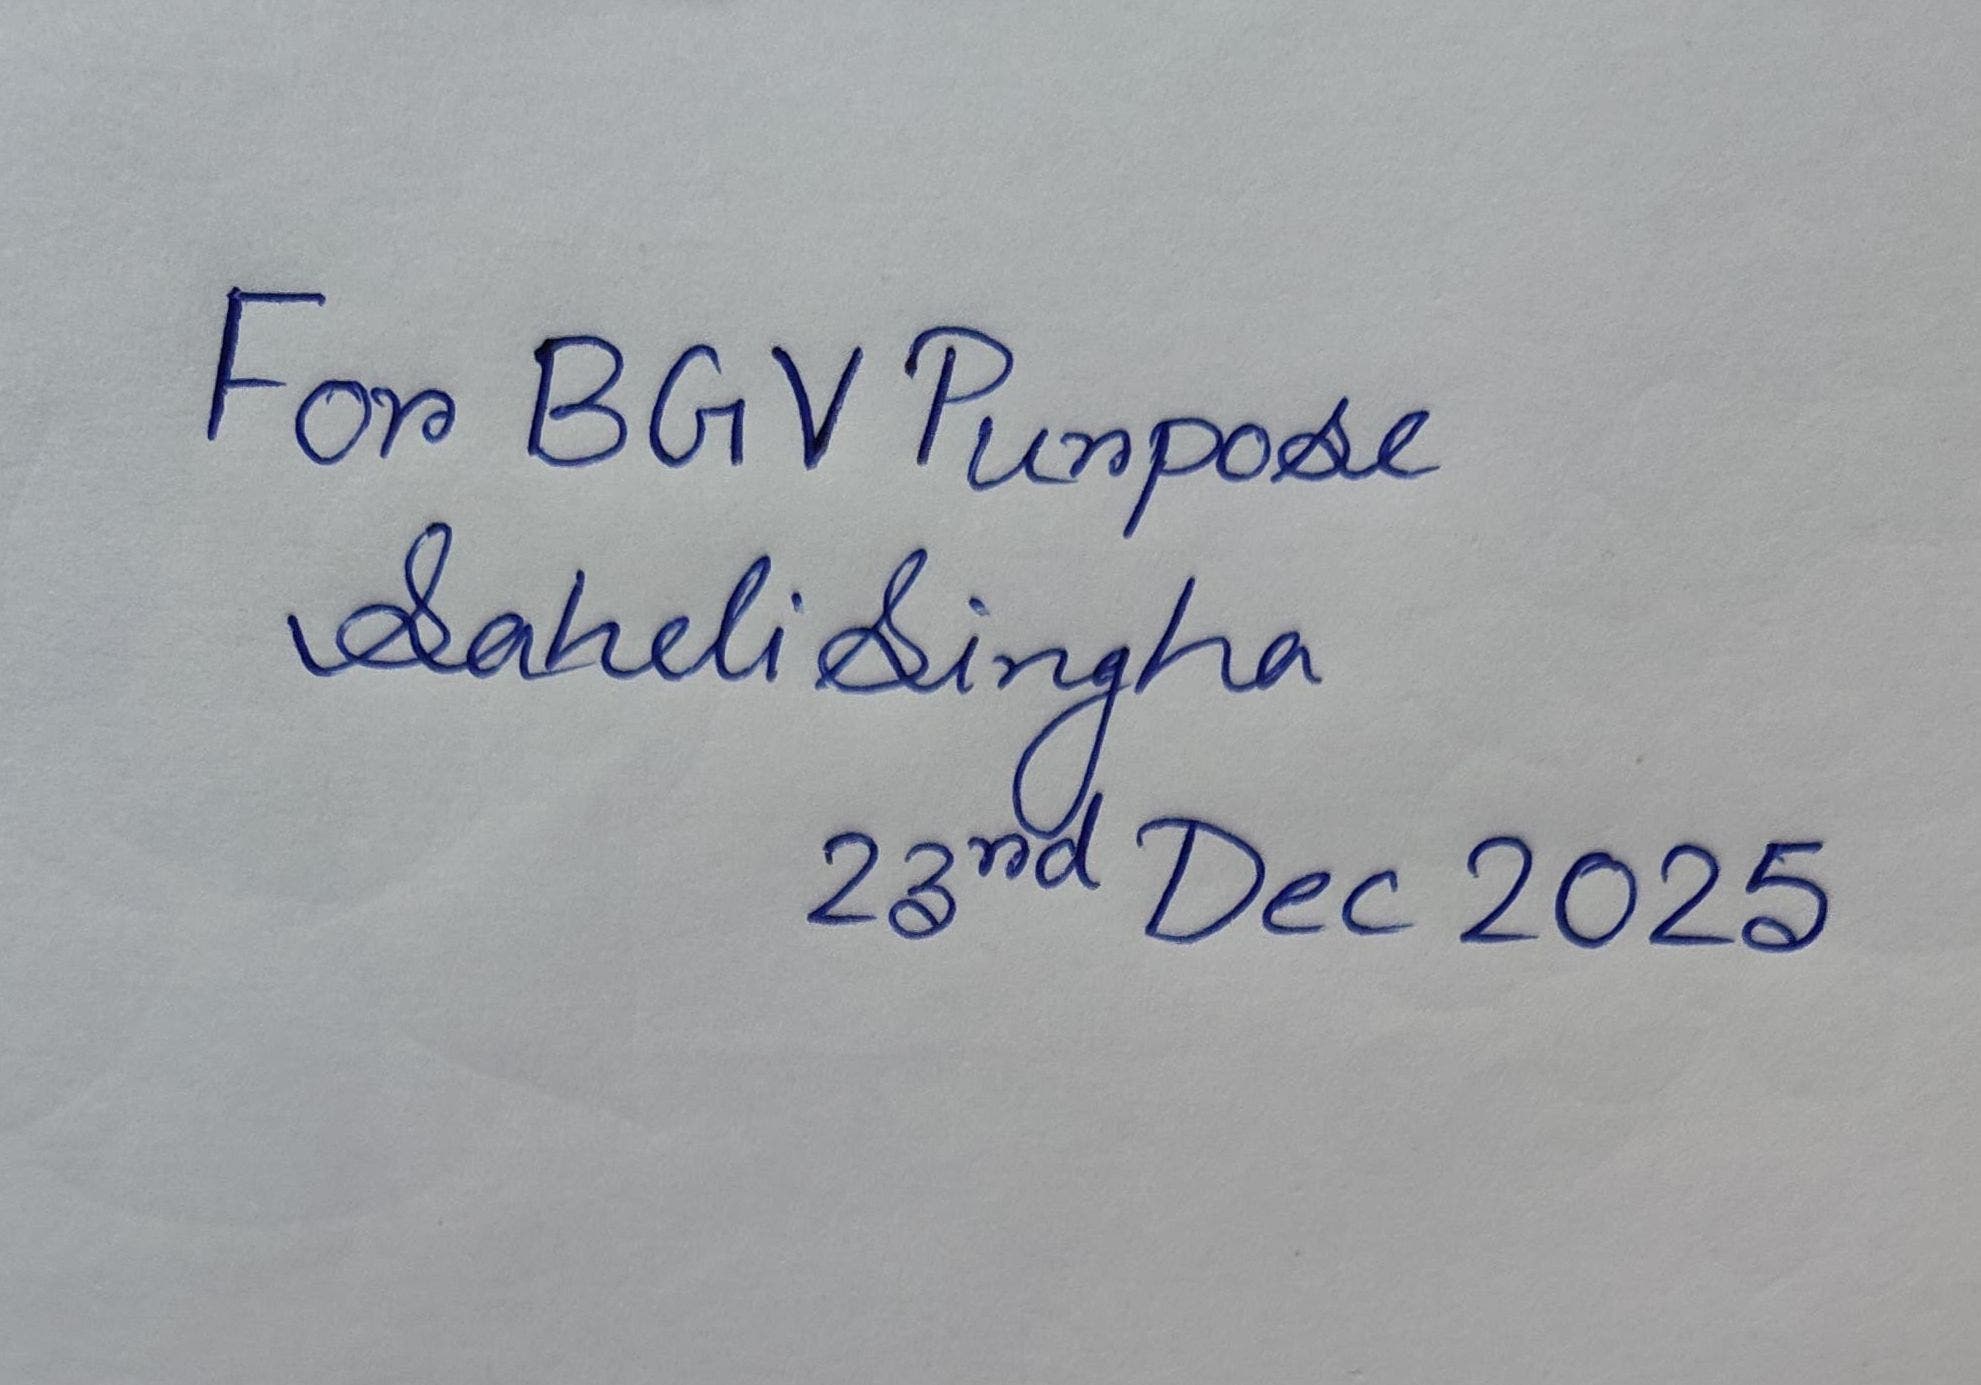 For BGV Purpose
Saheli Singha
23rd Dec 2025